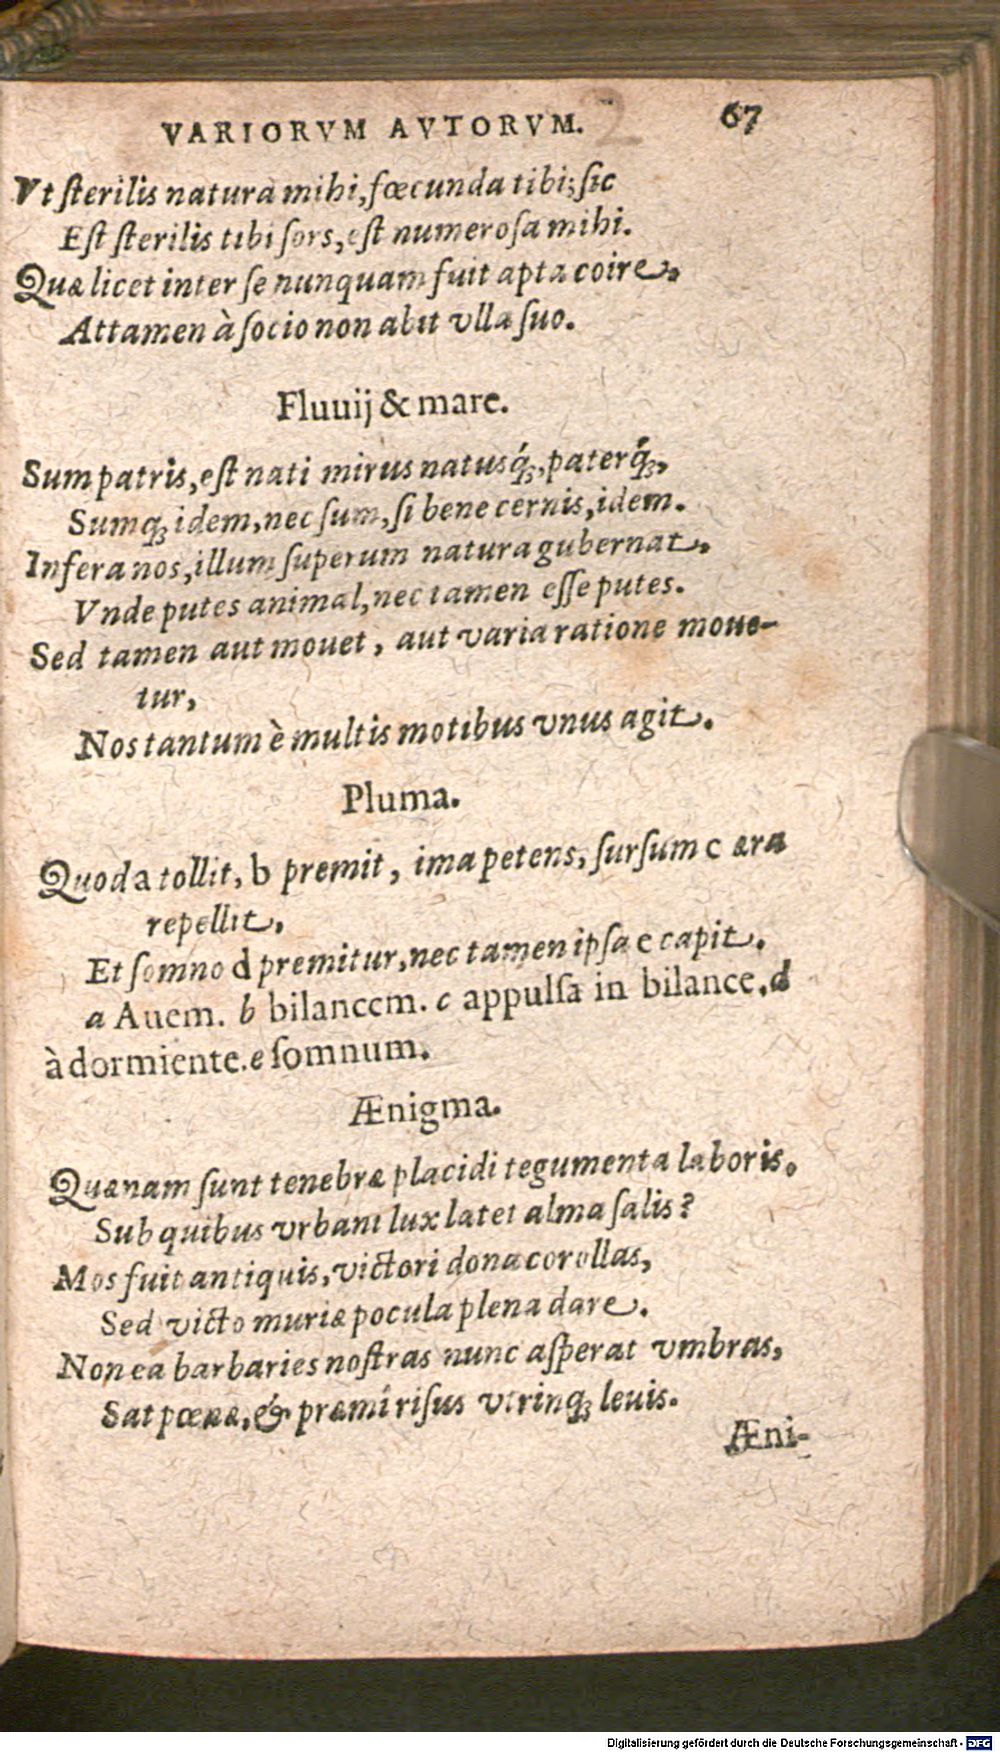 VARIORVM AVTORVM. 67
Vt ſterilis natura mihi, fœcunda tibi; ſic
Eſt ſterilis tibi ſors, eſt numeroſa mihi.
Quæ licet inter ſe nunquam fuit apta coire.
Attamen à ſocio non abit vlla ſuo.
Fluuij & mare.
Sum patris, eſt nati mirus natusq́;, paterq́;,
Sumq; idem, nec ſum, ſi bene cernis, idem.
Infera nos, illum ſuperum natura gubernat.
Vnde putes animal, nec tamen eſſe putes.
Sed tamen aut mouet, aut varia ratione moue-
tur,
Nos tantum è multis motibus vnus agit.
Pluma.
Quod a tollit, b premit, ima petens, ſurſum c æra
repellit,
Et ſomno d premitur, nec tamen ipſa e capit.
a Auem. b bilancem. c appulſa in bilance. d
à dormiente. e ſomnum.
Ænigma.
Quænam ſunt tenebræ placidi tegumenta laboris.
Sub quibus vrbani lux latet alma ſalis?
Mos fuit antiquis, victori dona corollas,
Sed victo muriæ pocula plena dare.
Non ea barbaries noſtras nunc aſperat vmbras,
Sat pœnæ, & præmî riſus vtrinq; leuis.
Æni-
Digitalisierung gefördert durch die Deutsche Forschungsgemeinschaft - DFG